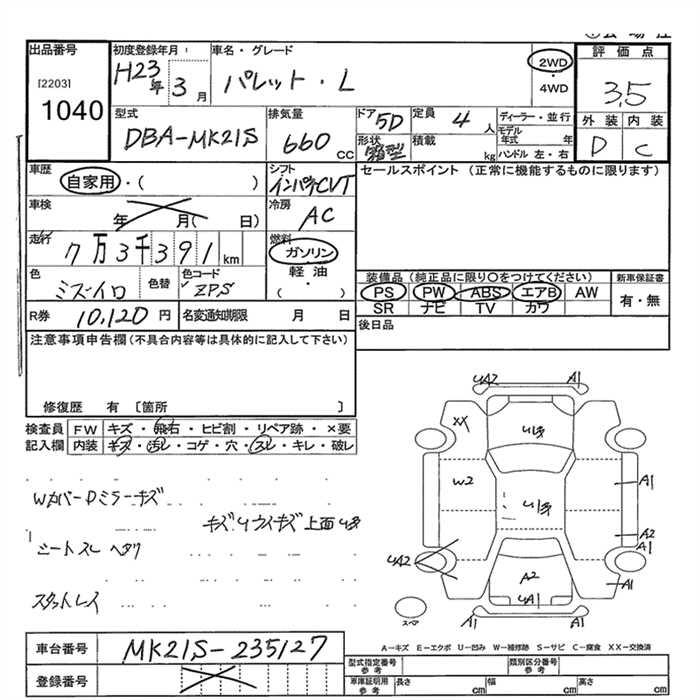 出品番号
[2203]
1040
初度登録年月
H23年 3月
車名・グレード
パレット・L
2WD
・
4WD
評価点
3.5
外装 内装
D C
型式
DBA-MK21S
排気量
660 CC
ドア 5D
形状 箱型
定員 4 人
積載 kg
ディーラー・並行
モデル年式 年
ハンドル 左・右
車歴
自家用・( )
シフト
インパネCVT
セールスポイント (正常に機能するものに限ります)
車検
年 月( 日)
冷房
AC
走行
7万3千391 km
燃料
ガソリン
軽油
( ・ )
色
ミズイロ
色替
色コード
ZPS
装備品 (純正品に限り〇をつけてください)
PS PW ABS エアB AW
SR ナビ TV カワ
新車保証書
有・無
R券 10,120 円
名変通知期限 月 日
後日品
注意事項申告欄 (不具合内容等は具体的に記入して下さい)
修復歴 有 [箇所 ]
検査員
記入欄
FW キズ・飛石・ヒビ割・リペア跡・×要
内装 キズ・汚レ・コゲ・穴・スレ・キレ・破レ
WカバーDミラーキズ
キズUウスキズ上面U多
シートスレ ヘタリ
スタットレス
UA2 A1
XX
W2
A1
A2
A1
UA2
A2
UA1
A1
スペア
A-キズ E-エクボ U-凹み W-補修跡 S-サビ C-腐食 XX-交換済
車台番号 MK21S-235127
登録番号
型式指定番号 参考
類別区分番号 参考
車庫証明用 参考 長さ cm 幅 cm 高さ cm